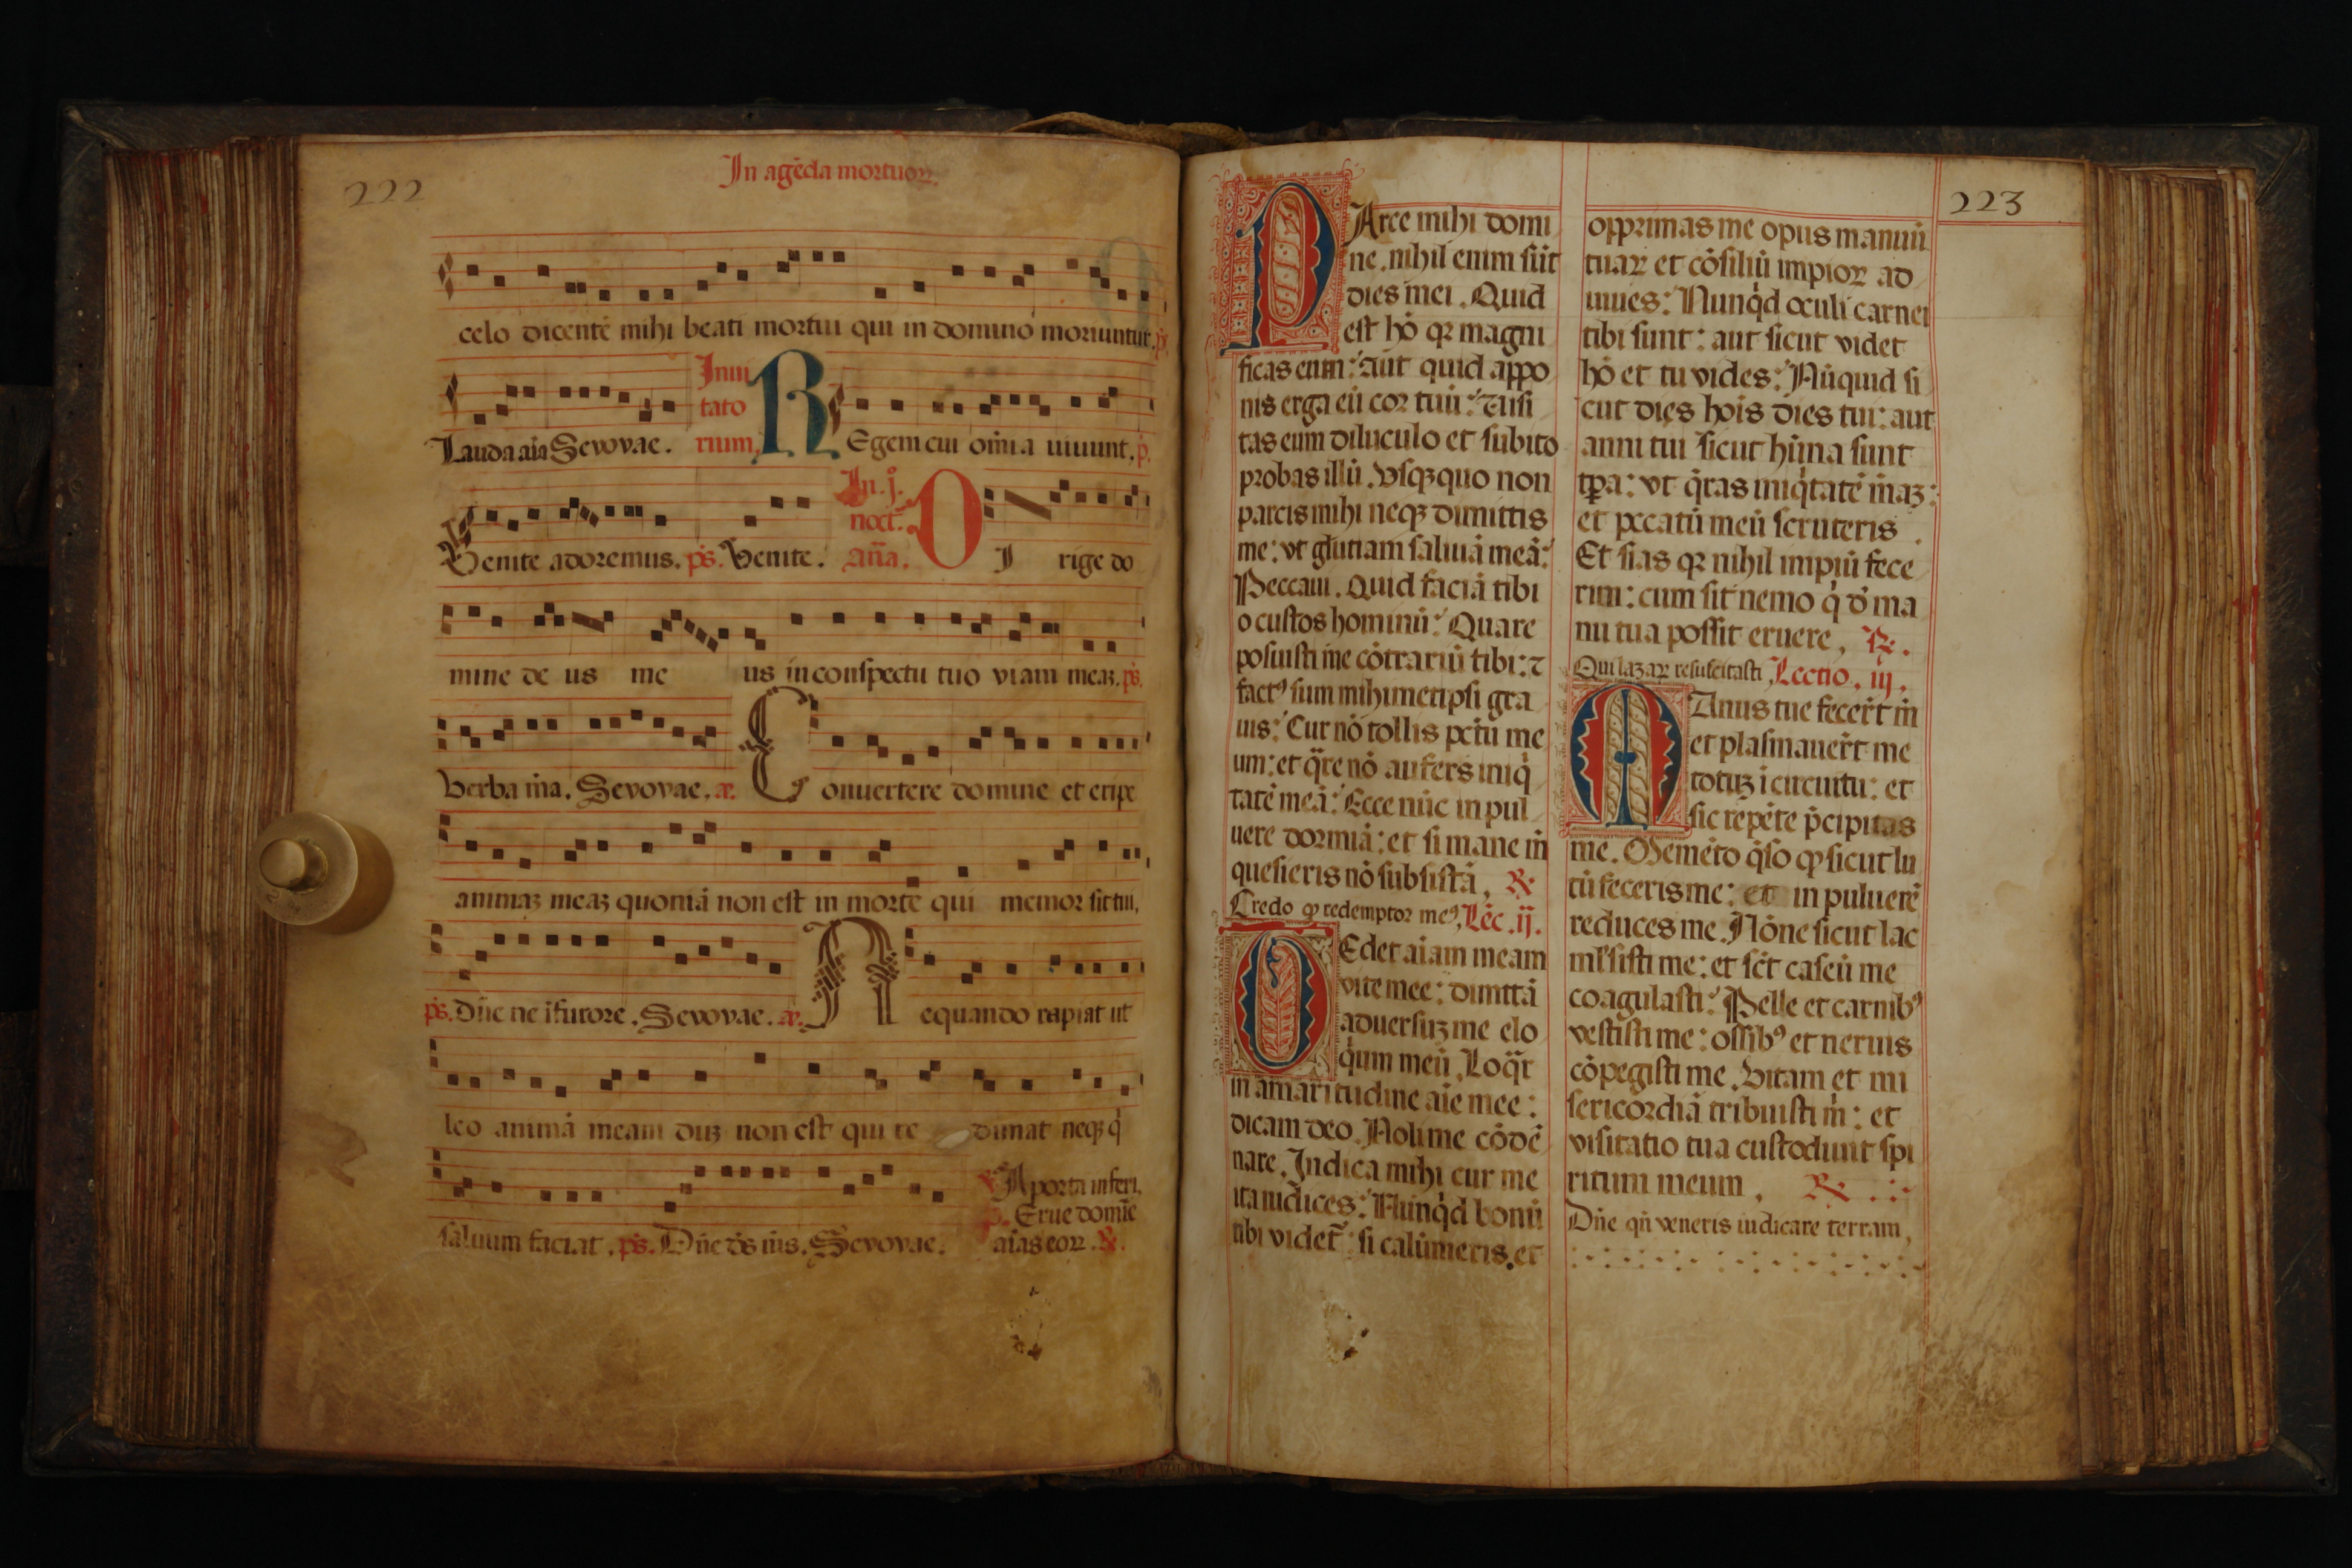 222
In agēda mortuoꝝ.
celo dicentē mihi beati mortui qui in domino moriuntur. p̄.
Lauda aīa Sevovae. Inui
tato
rium, REgem cui om̄ia uiuunt. p̄.
Venite adoremus. ps̄. Venite. In. j̊.
noct̄.
an̄a. DI rige do
mine de us me us in conspectu tuo viam meaꝫ. ps̄.
Verba m̄a. Sevovae. æ. Conuertere domine et eripe
animaꝫ meaꝫ quoniā non est in morte qui memor sit tui,
ps̄. Dn̄e ne ī furore. Sevovae. æ. Nequando rapiat ut
leo animā meam duꝫ non est qui re dimat neqꝫ q̇
saluum faciat. ps̄. Dn̄e ds̄ m̄s. Sevovae.
℣ A porta inferi,
p̄. Erue domīe
aīas eoꝝ. ℟.
PArce mihi domi
ne. nihil enim sūt
dies mei. Quid
est hō qꝛ magni
ficas eum: aut quid appo
nis erga eū cor tuū: Uisi
tas eum diluculo et subito
probas illū. Vsqꝫquo non
parcis mihi neqꝫ dimittis
me: vt glutiam saliuā meā:
Peccaui. Quid faciā tibi
o custos hominū: Quare
posuisti me cōtrariū tibi: ⁊
factꝰ sum mihimetipsi gra
uis: Cur nō tollis pctū me
um: et q̄re nō aufers iniq̇
tatē meā: Ecce nūc in pul
uere dormiā: et si mane m̄
quesieris nō subsistā, ℟
Credo ꝙ redemptor meꝰ, Lēc. ij.
TEdet aīam meam
vite mee: dimttā
aduersuꝫ me elo
q̇um meū. Loq̄r
in amaritudine aīe mee:
dicam deo. Noli me cōdē
nare. Indica mihi cur me
ita iudices: Nunq̇d bonū
tibi videt̄ si calūmeris, et
223
opprimas me opus manuū
tuaꝝ et cōsiliū impioꝝ ad
iuues: Nunq̇d oculi carnei
tibi sunt: aut sicut videt
hō et tu vides: Nūquid si
cut dies hoīs dies tui: aut
anni tui sicut hūna sunt
tp̄a: vt q̄ras iniq̇tatē m̄aꝫ:
et pccatū meū scruteris
Et sias qꝛ nihil impiū fece
rim: cum sit nemo q̇ d̄ ma
nu tua possit eruere, ℟.
Qui lazaꝝ resuscitasti, Lectio. iij.
MAnus tue fecer̄t m̄
et plasmauer̄t me
totuꝫ ī circuitu: et
sic repēte p̄cipitas
me. Memēto q̄so ꝙ sicut lu
tū feceris me: et in puluerē
reduces me. Nōne sicut lac
mlsisti me: et sc̄t caseū me
coagulasti: Pelle et carnibꝰ
vestisti me: ossibꝰ et neruis
cōpegisti me. Vitam et mi
sericordiā tribuisti m̄: et
visitatio tua custodiuit spi
ritum meum, ℟
Dn̄e qn̄ veneris iudicare terram,